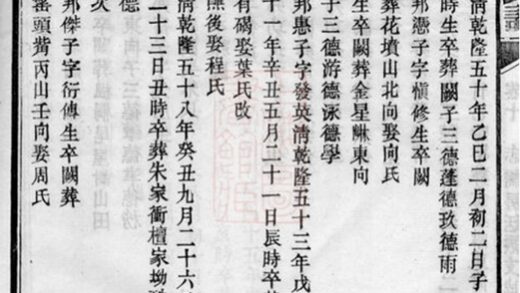 清乾隆五十年乙巳二月初二日子
時生卒葬闕子三德蓬德玖德雨
邦憑子字慎修生卒闕
葬花墳山北向娶向氏
生卒闕葬金星東向
子三德游德泳德學
邦子字發英清乾隆五十三年戊
十一年辛丑五月二十一日辰時卒
有碣娶葉氏改
後娶程氏
清乾隆五十八年癸丑九月二十六
二十三日丑時卒葬朱家衝檀家坳
德
邦傑子字衍傳生卒闕葬
頭嘴丙山壬向娶周氏